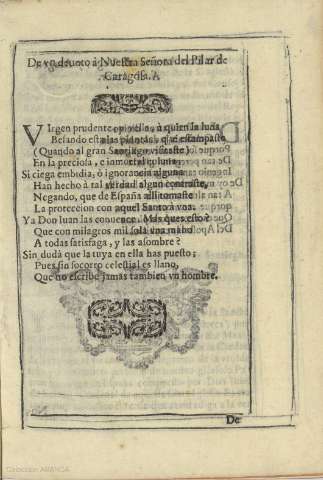 De vn deuoto à Nuestra Señora del Pilar de
Çaragoça.
VIrgen prudente, y bella, à quien la luna
Besando està las plantas, que estampaste
(Quando al gran Santiago visitaste)
En la preciosa, e inmortal coluna,
Si ciega embidia, ò ignorancia alguna
Han hecho à tal verdad algun contraste,
Negando, que de España alli tomaste
La proteccion con aquel Santo à vna.
Ya Don Iuan las conuence. Mas que esto?
Que con milagros mil sola vna mano
A todas satisfaga, y las asombre?
Sin dudà que la tuya en ella has puesto;
Pues sin socorro celestial es llano,
Que no escribe jamas tambien vn hombre.
De
Colección ARANGA